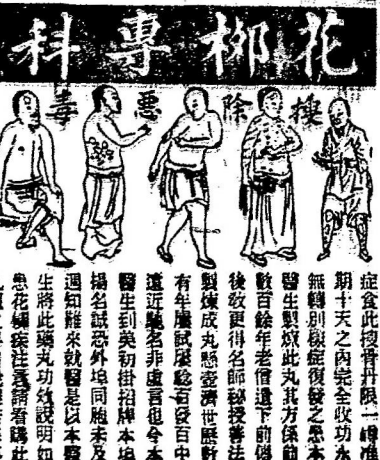 花柳專科
搜除惡毒
症食此搜骨丹限一准
期十天之內完全收功永
無轉別樣症復發之患本
醫生製煉此丸其方係前
數百餘年老僧遺下前
後更得名師秘授善法
製煉成丸懸壺濟世歷數
有年屢試屢驗百發百中
遠近馳名非虛言也今本
醫生到美初掛招牌本埠
揚名誠恐外埠同胞未及
週知難來就醫是以本醫
生將此藥丸功效說明如
患花柳疾注意請看購此